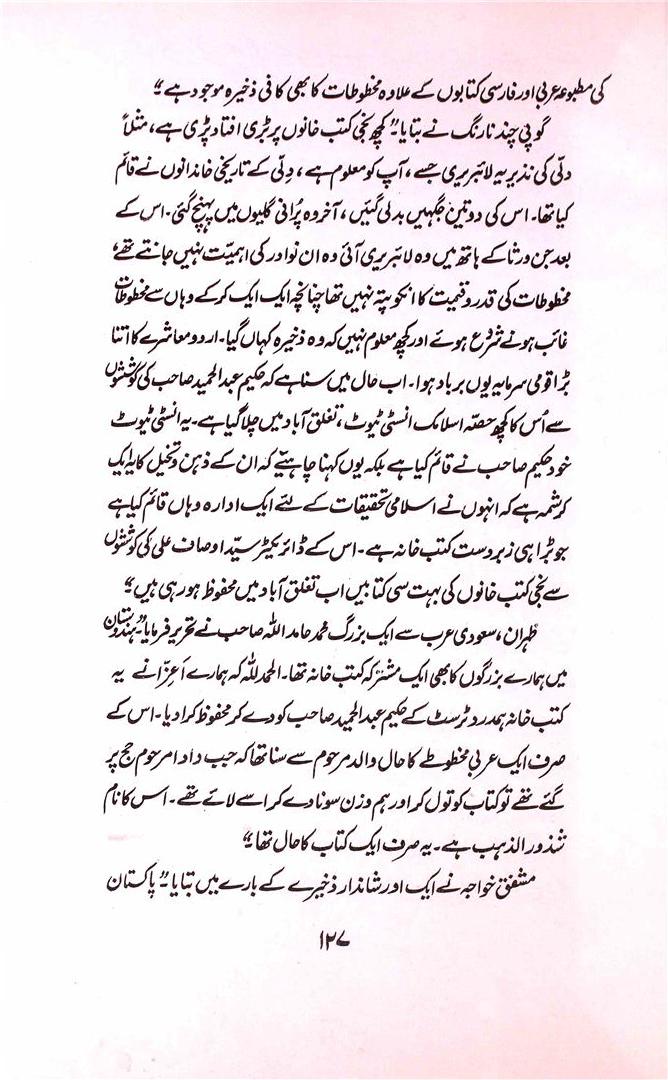 کی مطبوعہ عربی اور فارسی کتابوں کے علاوہ مخطوطات کا بھی کافی ذخیرہ موجود ہے۔"
گوپی چند نارنگ نے بتایا۔" کچھ نجی کتب خانوں پر بُری افتاد پڑی ہے، مثلاً
دلّی کی نذیریہ لائبریری جسے، آپ کو معلوم ہے، دلّی کے تاریخی خاندانوں نے قائم
کیا تھا۔ اس کی دو تین جگہیں بدلی گئیں، آخر وہ پُرانی گلیوں میں پہنچ گئی۔ اس کے
بعد جن ورثا کے ہاتھ میں وہ لائبریری آئی وہ ان نوادر کی اہمیّت نہیں جانتے تھے،
مخطوطات کی قدر و قیمت کا انکو پتہ نہیں تھا چنانچہ ایک ایک کرکے وہاں سے مخطوطات
غائب ہونے شروع ہوئے اور کچھ معلوم نہیں کہ وہ ذخیرہ کہاں گیا۔ اردو معاشرے کا اتنا
بڑا قومی سرمایہ یوں برباد ہوا۔ اب حال میں سنا ہے کہ حکیم عبدالحمید صاحب کی کوششوں
سے اُس کا کچھ حصّہ اسلامک انسٹی ٹیوٹ، تغلق آباد میں چلا گیا ہے۔ یہ انسٹی ٹیوٹ
خود حکیم صاحب نے قائم کیا ہے بلکہ یوں کہنا چاہیئے کہ ان کے ذہن و تخیل کا یہ ایک
کرشمہ ہے کہ انہوں نے اسلامی تحقیقات کے لئے ایک ادارہ وہاں قائم کیا ہے
جو بڑا ہی زبردست کتب خانہ ہے۔ اس کے ڈائریکٹر سیّد اوصاف علی کی کوششوں
سے نجی کتب خانوں کی بہت سی کتابیں اب تغلق آباد میں محفوظ ہو رہی ہیں۔"
ظہران، سعودی عرب سے ایک بزرگ محمد حامد اللہ صاحب نے تحریر فرمایا۔" ہندوستان
میں ہمارے بزرگوں کا بھی ایک مشترکہ کتب خانہ تھا۔ الحمدللہ کہ ہمارے اَعِزّا نے یہ
کتب خانہ ہمدرد ٹرسٹ کے حکیم عبدالحمید صاحب کو دے کر محفوظ کرا دیا۔ اس کے
صرف ایک عربی مخطوطے کا حال والد مرحوم سے سنا تھا کہ جب دادا مرحوم حج پر
گئے تھے تو کتاب کو تول کر اور ہم وزن سونا دے کر اسے لائے تھے۔ اس کا نام
شذور الذہب ہے۔ یہ صرف ایک کتاب کا حال تھا۔"
مشفق خواجہ نے ایک اور شاندار ذخیرے کے بارے میں بتایا۔" پاکستان
۱۲۷